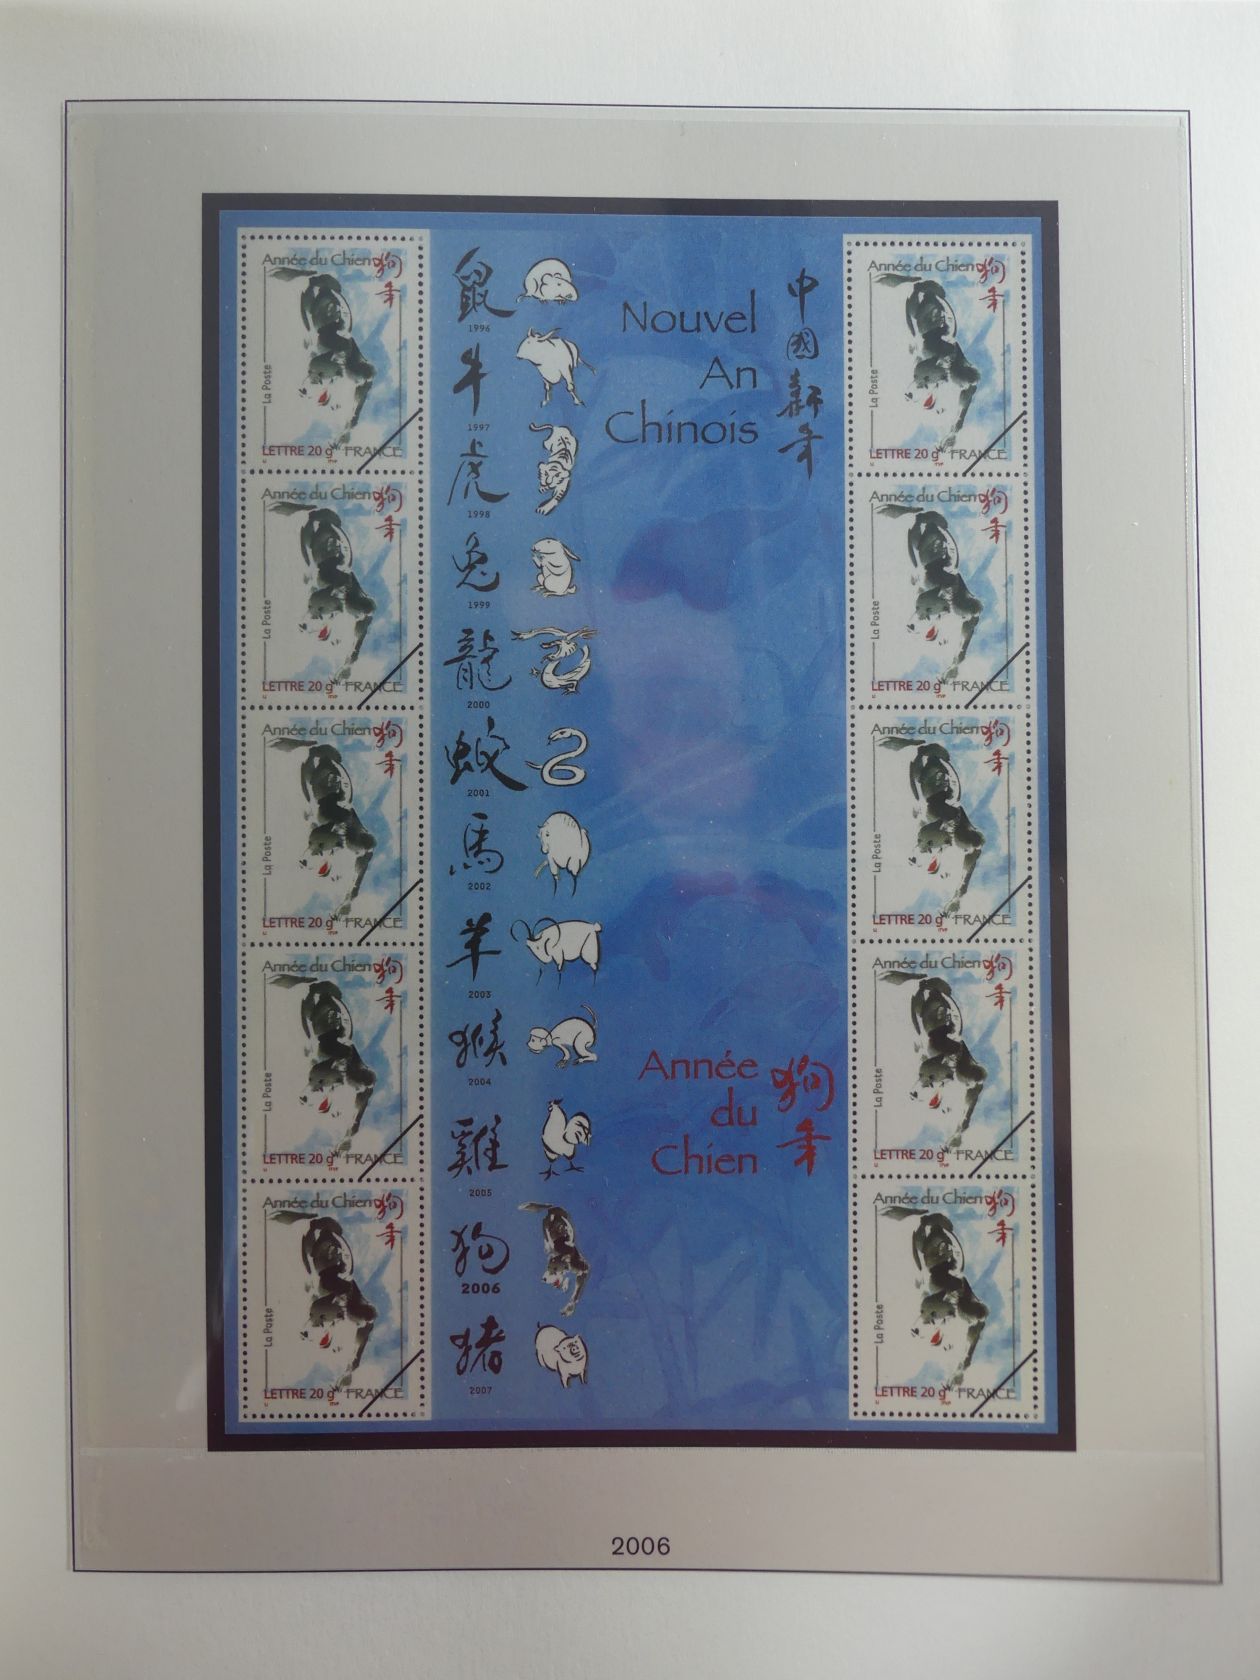 Année du Chien 狗
年
La Poste
LETTRE 20 g FRANCE
ITVF
Année du Chien 狗
年
La Poste
LETTRE 20 g FRANCE
ITVF
Année du Chien 狗
年
La Poste
LETTRE 20 g FRANCE
ITVF
Année du Chien 狗
年
La Poste
LETTRE 20 g FRANCE
ITVF
Année du Chien 狗
年
La Poste
LETTRE 20 g FRANCE
ITVF
鼠
1996
牛
1997
虎
1998
兔
1999
龍
2000
蛇
2001
馬
2002
羊
2003
猴
2004
雞
2005
狗
2006
猪
2007
Nouvel
An
Chinois
中國新年
Année
du
Chien
狗年
Année du Chien 狗
年
La Poste
LETTRE 20 g FRANCE
ITVF
Année du Chien 狗
年
La Poste
LETTRE 20 g FRANCE
ITVF
Année du Chien 狗
年
La Poste
LETTRE 20 g FRANCE
ITVF
Année du Chien 狗
年
La Poste
LETTRE 20 g FRANCE
ITVF
Année du Chien 狗
年
La Poste
LETTRE 20 g FRANCE
ITVF
2006